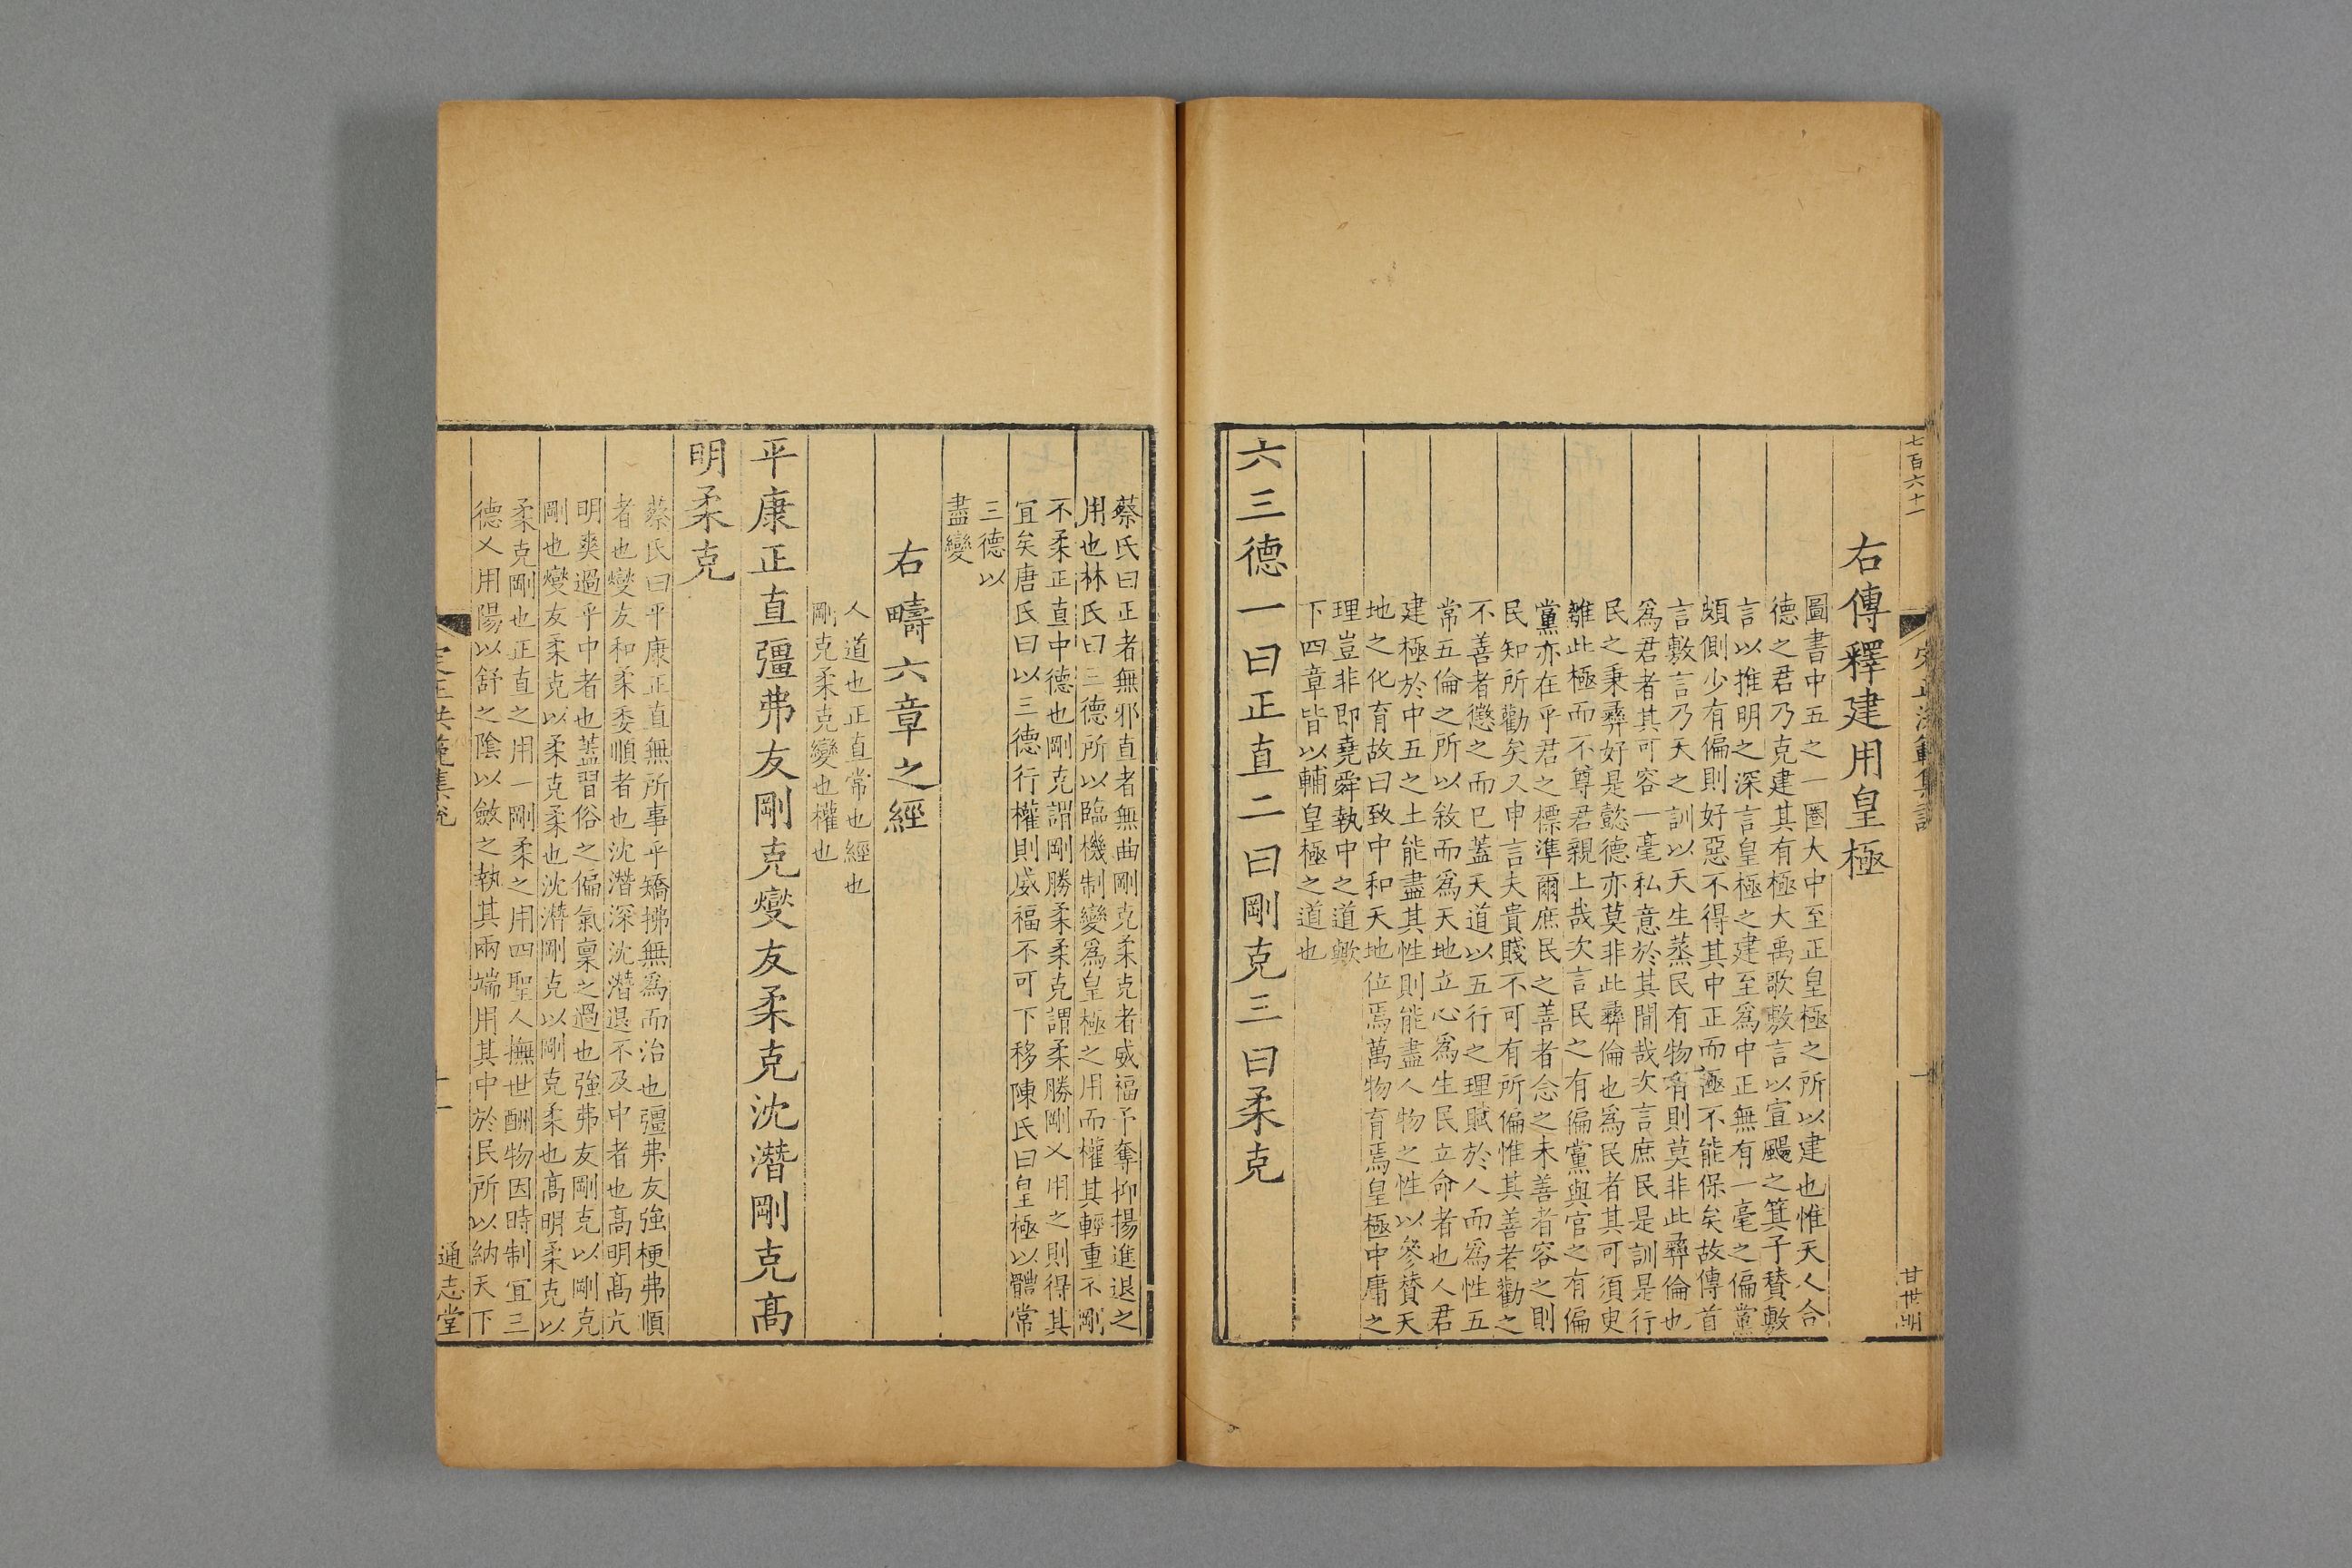 七百六十一
甘世明
右傳釋建用皇極
圖書中五之一圈大中至正皇極之所以建也惟天人合
德之君乃克建其有極大禹歌敷言以宣颺之箕子賛敷
言以推明之深言皇極之建至爲中正無有一毫之偏黨
頗側少有偏則好惡不得其中正而極不能保矣故傳首
言敷言乃天之訓以天生蒸民有物有則莫非此彞倫也
爲君者其可容一毫私意於其間哉次言庶民是訓是行
民之秉彞好是懿德亦莫非此彞倫也爲民者其可須臾
離此極而不尊君親上哉次言民之有偏黨與官之有偏
黨亦在乎君之標準爾庶民之善者念之未善者容之則
民知所勸矣又申言夫貴賤不可有所偏惟其善者勸之
不善者懲之而已蓋天道以五行之理賦於人而爲性五
常五倫之所以敘而爲天地立心爲生民立命者也人君
建極於中五之土能盡其性則能盡人物之性以參賛天
地之化育故曰致中和天地位焉萬物育焉皇極中庸之
理豈非即堯舜執中之道歟
下四章皆以輔皇極之道也
六三德一曰正直二曰剛克三曰柔克
蔡氏曰正者無邪直者無曲剛克柔克者威福予奪抑揚進退之
用也林氏曰三德所以臨機制變爲皇極之用而權其輕重不剛
不柔正直中德也剛克謂剛勝柔柔克謂柔勝剛乂用之則得其
宜矣唐氏曰以三德行權則威福不可下移陳氏曰皇極以體常
三德以
盡變
右疇六章之經
人道也正直常也經也
剛克柔克變也權也
平康正直彊弗友剛克燮友柔克沈潛剛克高
明柔克
蔡氏曰平康正直無所事乎矯拂無爲而治也彊弗友強梗弗順
者也燮友和柔委順者也沈潛深沈潛退不及中者也高明高亢
明爽過乎中者也蓋習俗之偏氣稟之過也強弗友剛克以剛克
剛也燮友柔克以柔克柔也沈潛剛克以剛克柔也高明柔克以
柔克剛也正直之用一剛柔之用四聖人撫世酬物因時制宜三
德乂用陽以舒之陰以斂之執其兩端用其中於民所以納天下
定正洪範集說
十一
通志堂